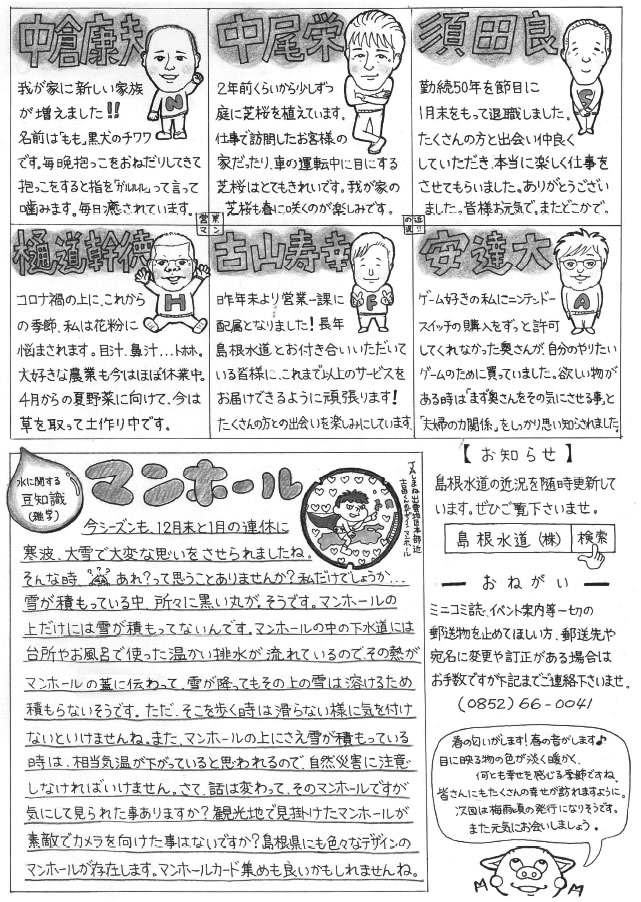 中倉康夫
我が家に新しい家族
が増えました!!
名前は「もも」。黒犬のチワワ
です。毎晩抱っこをおねだりしてきて
抱っこをすると指を「ガルルル」って言って
噛みます。毎日癒されています。
中尾栄
2年前くらいから少しずつ
庭に芝桜を植えています。
仕事で訪問したお客様の
家だったり、車の運転中に目にする
芝桜はとてもきれいです。我が家の
芝桜も春に咲くのが楽しみです。
須田良
勤続50年を節目に
1月末をもって退職しました。
たくさんの方と出会い仲良く
していただき、本当に楽しく仕事を
させてもらいました。ありがとうござい
ました。皆様お元気で。またどこかで。
営業
マン
の近
況!!
樋道幹徳
H
コロナ禍の上に、これから
の季節、私は花粉に
悩まされます。目汁、鼻汁…トホホ。
大好きな農業も今はほぼ休業中。
4月からの夏野菜に向けて、今は
草を取って土作り中です。
古山寿幸
F
昨年末より営業一課に
配属となりました!長年
島根水道とお付き合いいただいて
いる皆様に、これまで以上のサービスを
お届けできるように頑張ります!
たくさんの方との出会いを楽しみにしています。
安達大
A
ゲーム好きの私にニンテンドー
スイッチの購入をずっと許可
してくれなかった奥さんが、自分のやりたい
ゲームのために買っていました。欲しい物が
ある時は「まず奥さんをその気にさせる事」と
「夫婦の力関係」をしっかり思い知らされました。
水に関する
豆知識
(雑学)
マンホール
今シーズンも、12月末と1月の連休に
寒波、大雪で大変な思いをさせられましたね。
そんな時、あれ?って思うことありませんか?私だけでしょうか...
雪が積もっている中、所々に黒い丸が。そうです。マンホールの
上だけには雪が積もってないんです。マンホールの中の下水道には
台所やお風呂で使った温かい排水が流れているので、その熱が
マンホールの蓋に伝わって、雪が降ってもその上の雪は溶けるため
積もらないそうです。ただ、そこを歩く時は滑らない様に気を付け
ないといけませんね。また、マンホールの上にさえ雪が積もっている
時は、相当気温が下がっていると思われるので、自然災害に注意
しなければいけません。さて、話は変わって、そのマンホールですが
気にして見られた事ありますか?観光地で見掛けたマンホールが
素敵でカメラを向けた事はないですか?島根県にも色々なデザインの
マンホールが存在します。マンホールカード集めも良いかもしれませんね。
【お知らせ】
島根水道の近況を随時更新して
います。ぜひご覧下さいませ。
島根水道(株) 検索
おねがい
ミニコミ誌、イベント案内等一切の
郵送物を止めてほしい方、郵送先や
宛名に変更や訂正がある場合は
お手数ですが下記までご連絡下さいませ。
(0852)66-0041
春の匂いがします!春の音がします♪
目に映る物の色が淡く暖かく、
何とも幸せを感じる季節ですね。
皆さんにもたくさんの幸せが訪れますように。
次回は梅雨頃の発行になりそうです。
また元気にお会いしましょう。